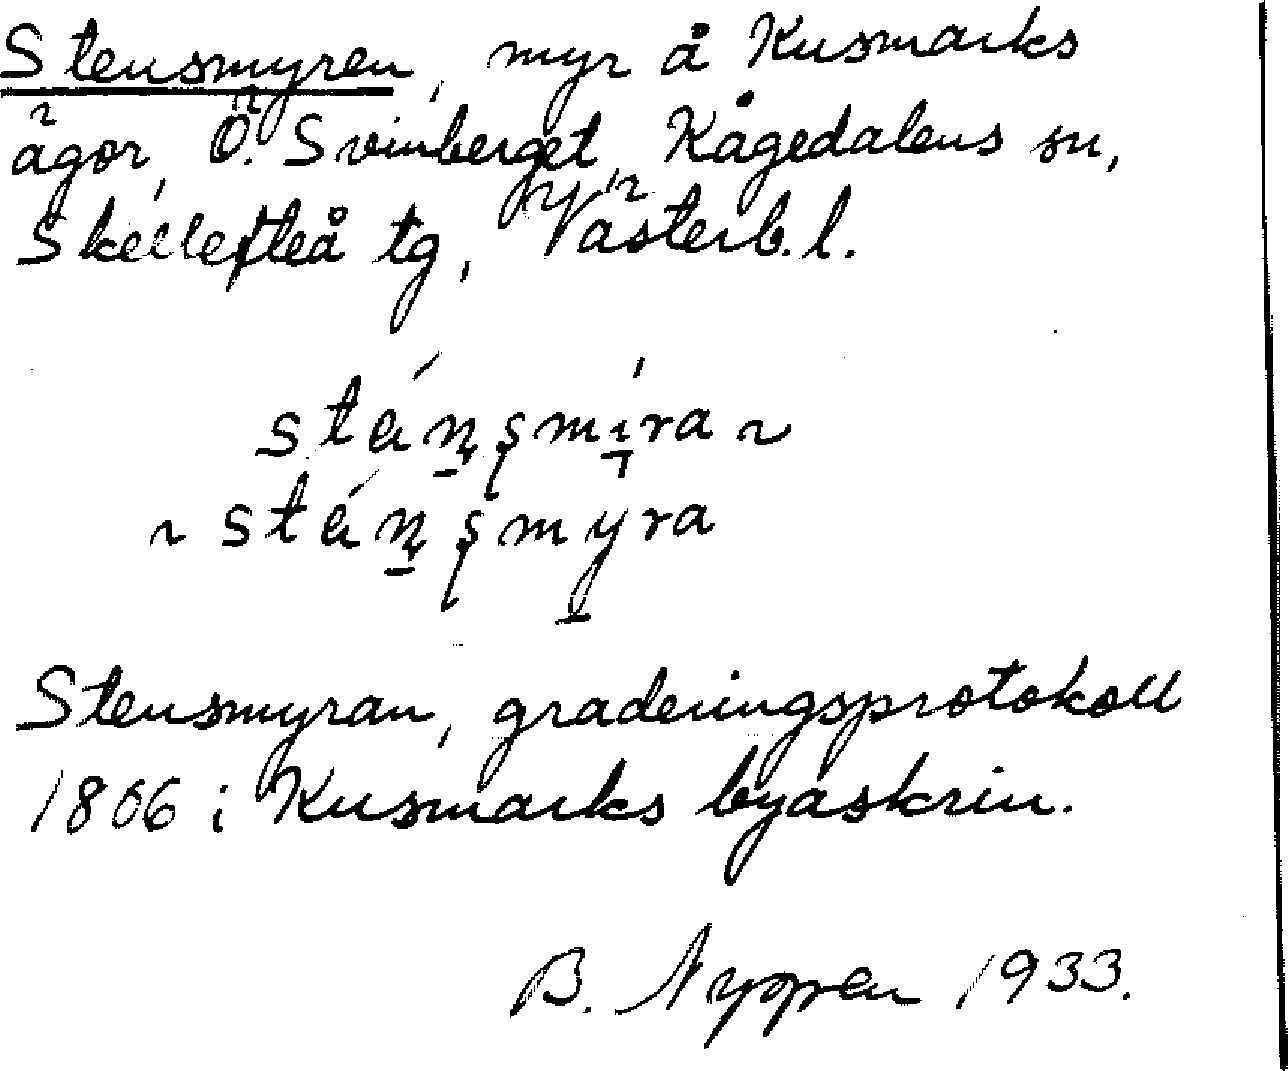 Stensmyren, myr å Kusmarks
ägor, Ö. Svinberget, Kågedalens sn,
Skellefteå tg, Västerb. l.
sténsmíra ~
~ sténsmyra
Stensmyran, graderingsprotokoll
1806 i Kusmarks byaskrin.
B. Nyppen 1933.